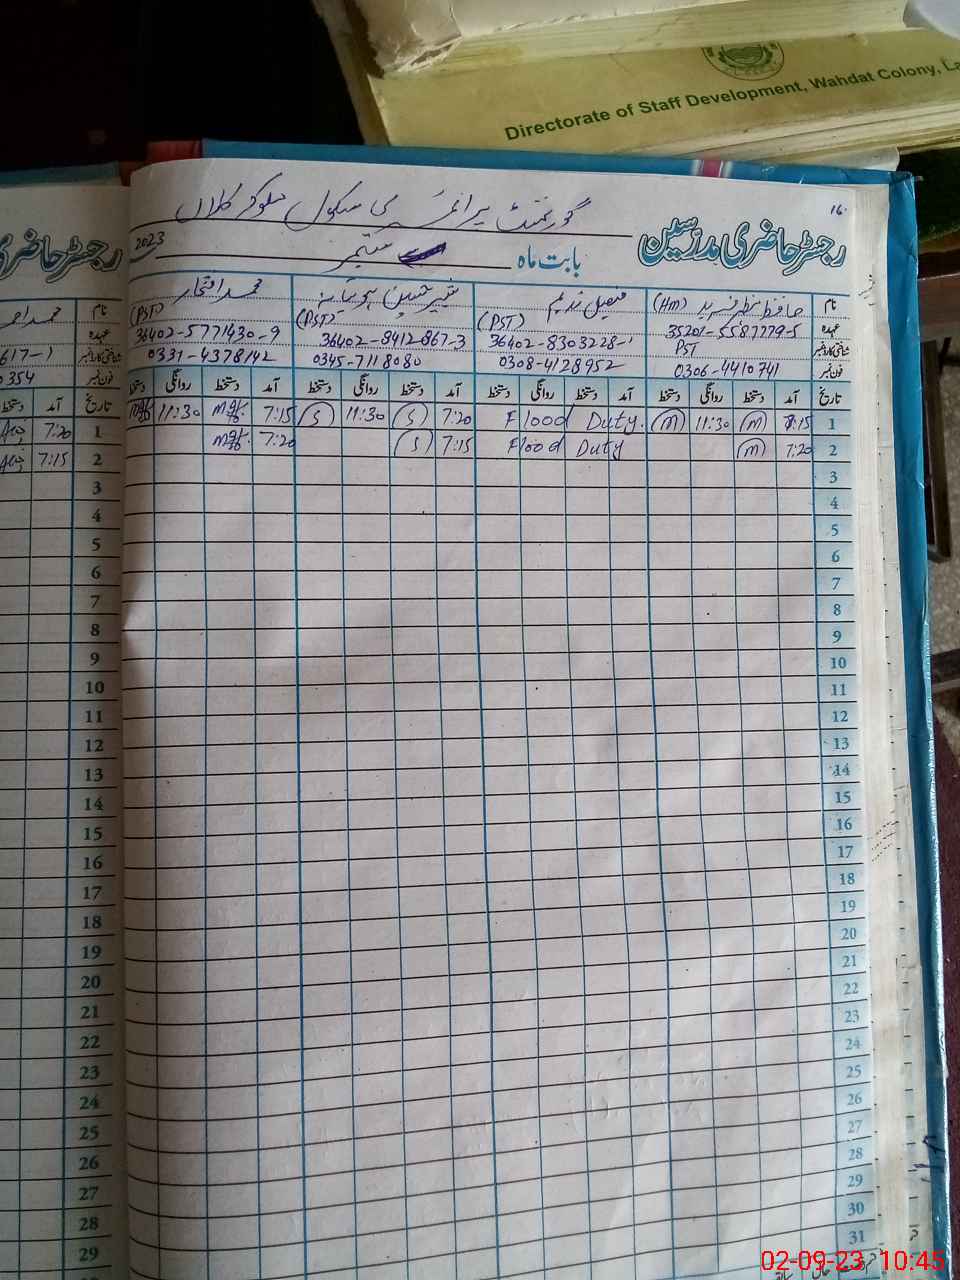 Directorate of Staff Development, Wahdat Colony, La
16
گورنمنٹ پرائمری سکول ملوکر کلاں
رجسٹر حاضری مدرسین
بابت ماہ ستمبر 2023
نام حافظ (HM) فیصل ندیم محمد افتخار
عہدہ (PST) (PST) (PST)
شناختی کارڈ نمبر 35201-5587779-5 36402-8303228-1 36402-8412867-3 36402-5771430-9
PST
فون نمبر 0306-4410741 0308-4128952 0345-7118080 0331-4378142
تاریخ آمد دستخط روانگی دستخط آمد دستخط روانگی دستخط آمد دستخط روانگی دستخط آمد دستخط روانگی دستخط
1 7:15 (M) 11:30 (M) Flood Duty. 7:20 (S) 11:30 (S) 7:15 11:30
2 7:20 (M) Flood Duty 7:15 (S) 7:20
3
4
5
6
7
8
9
10
11
12
13
14
15
16
17
18
19
20
21
22
23
24
25
26
27
28
29
30
31
رجسٹر حاضری
محمد احمد
617-1
0354
تاریخ آمد دستخط
1 7:20
2 7:15
3
4
5
6
7
8
9
10
11
12
13
14
15
16
17
18
19
20
21
22
23
24
25
26
27
28
29
02-09-23 10:45